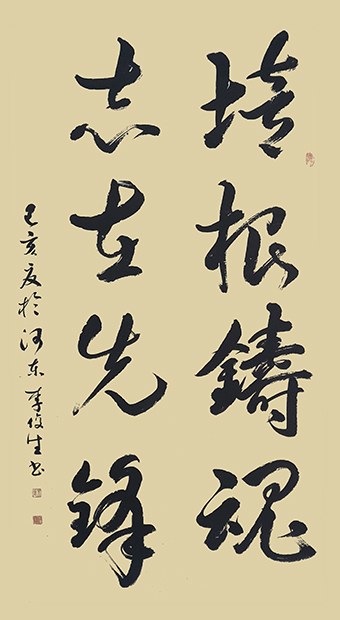 培根鑄魂
志在先鋒
己亥夏於河东李俊生书